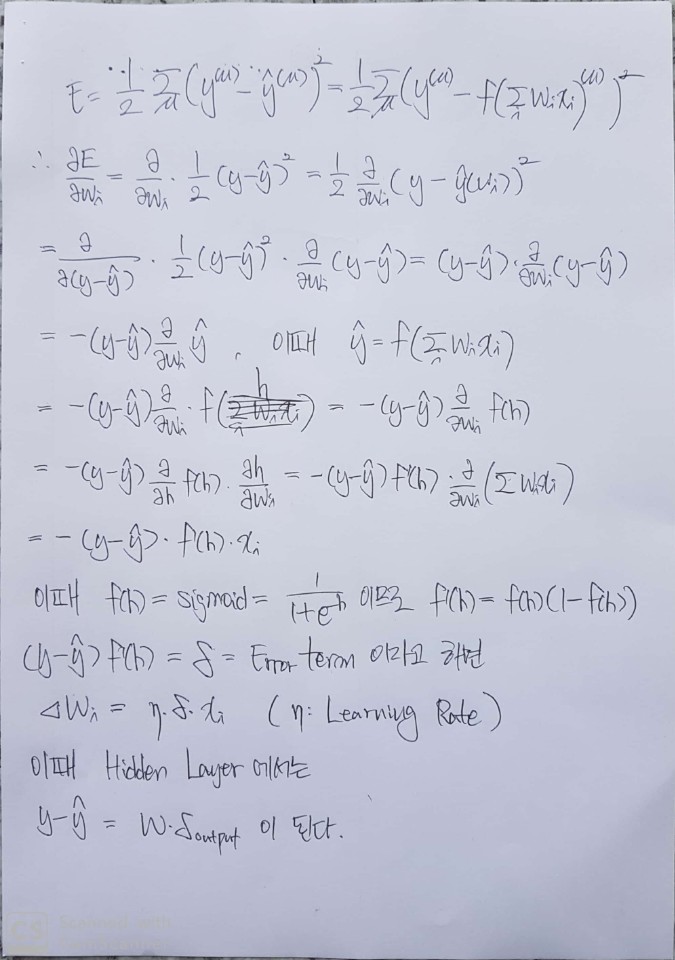 E = 1/2 Σ_μ (y^(μ) - ŷ^(μ))² = 1/2 Σ_μ (y^(μ) - f(Σ_i w_i x_i)^(μ))²
∴ ∂E/∂w_i = ∂/∂w_i · 1/2 (y-ŷ)² = 1/2 ∂/∂w_i (y - ŷ(w_i))²
= ∂/∂(y-ŷ) · 1/2 (y-ŷ)² · ∂/∂w_i (y-ŷ) = (y-ŷ) · ∂/∂w_i (y-ŷ)
= -(y-ŷ) ∂/∂w_i ŷ , 이때 ŷ = f(Σ_i w_i x_i)
= -(y-ŷ) ∂/∂w_i · f(h) = -(y-ŷ) ∂/∂w_i f(h)
= -(y-ŷ) ∂/∂h f(h) · ∂h/∂w_i = -(y-ŷ) f'(h) · ∂/∂w_i (Σ w_i x_i)
= -(y-ŷ) · f'(h) · x_i
이때 f(h) = sigmoid = 1/(1+e^-h) 이므로 f'(h) = f(h)(1-f(h))
(y-ŷ) f'(h) = δ = Error term 이라고 하면
△w_i = η·δ·x_i (η: Learning Rate)
이때 Hidden Layer 에서는
y-ŷ = W·δ_output 이 된다.
CS Scanned with
CamScanner